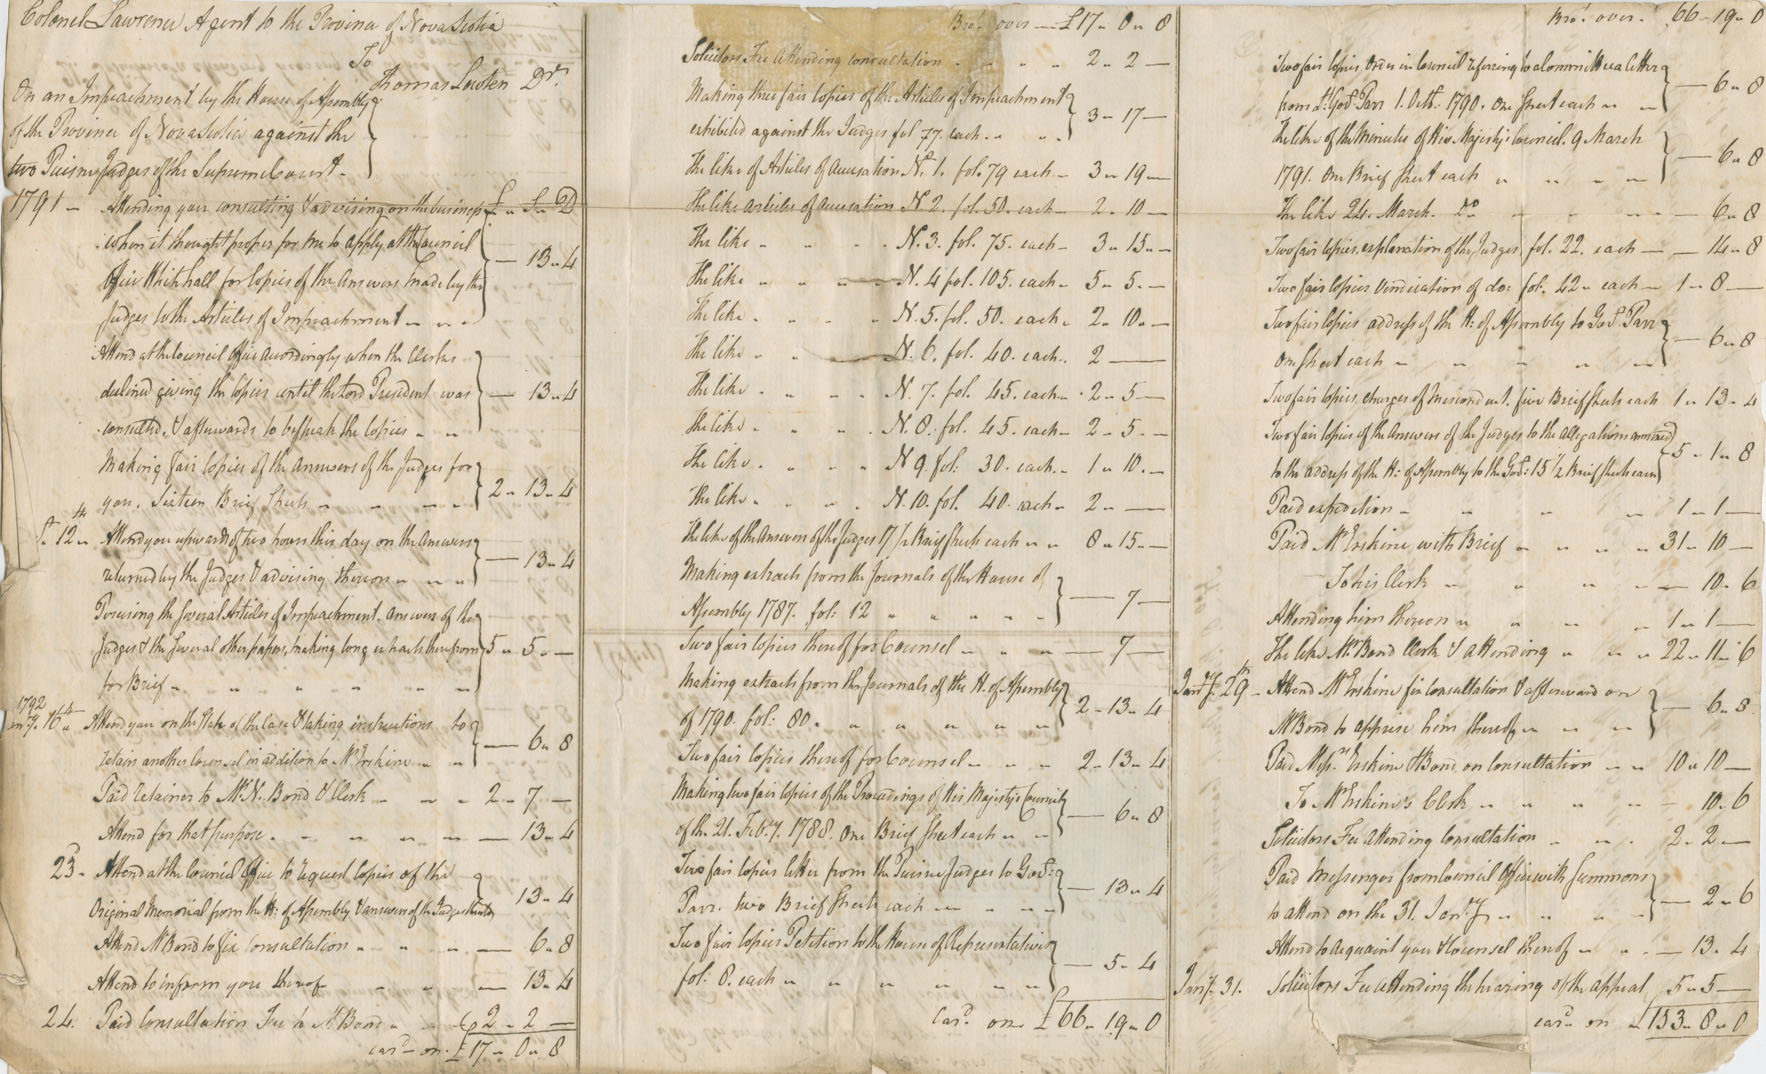 Colonel Lawrence Agent to the Province of Nova Scotia
To
Thomas Lowten Dr.
On an Impeachment by the House of Assembly
of the Province of Nova Scotia against the
two Puisne Judges of the Supreme Court.
1791 - Attending you consulting & advising on the business £ " S " D
when it thought proper for me to apply at the Council
Office Whitehall for Copies of the Answers made by the — 13 " 4
Judges to the Articles of Impeachment " " "
Attend at the Council Office accordingly when the Clerks
declined giving the Copies until the Lord President was — 13 " 4
consulted, & afterwards to bespeak the Copies " "
Making fair Copies of the Answers of the Judges for
you, Sixteen Brief Sheets " " " " 2 " 13 " 4
12th Attend you upwards of two hours this day on the Answers
returned by the Judges & advising thereon " " " — 13 " 4
Perusing the several Articles of Impeachment, Answers of the
Judges & the several other papers, making long extracts therefrom 5 " 5 " —
for Brief " " " " " " "
1792
16th Attend you on the State of the Case & taking instructions to
retain another Counsel in addition to Mr Erskine " " — 6 " 8
Paid retainer to Mr N. Bond & Clerk " " " 2 " 7 —
Attend for that purpose " " " " " — 13 " 4
23 " Attend at the Council Office to request Copies of the
Original Memorial from the H: of Assembly & answer of the Judges thereto 13 " 4
Attend Mr Bond to fix Consultation " " " — 6 " 8
Attend to inform you thereof " " " — 13 " 4
24. Paid Consultation Fee to Mr Bond " " 2 " 2 —
card on £17 " 0 " 8
Bro.t over — £17 " 0 " 8
Solicitors Fee Attending consultation " " " " 2 " 2 —
Making three fair Copies of the Articles of Impeachment
exhibited against the Judges fol 77. each " " " 3 " 17 —
The like of Articles of Accusation No. 1. fol. 79 each - 3 " 19 —
The like articles of Accusation No 2. fol. 50. each - 2 " 10 —
The like " " " N. 3. fol. 75. each - 3 " 15 " —
The like " " " N. 4 fol. 105. each - 5 " 5 —
The like " " " N. 5. fol. 50. each " 2 " 10 " —
The like " " N. 6. fol. 40. each " 2 ——
The like " " " N. 7. fol. 45. each - 2 " 5 —
The like " " " N. 8. fol. 45. each - 2 " 5 —
The like " " " N 9. fol: 30. each " 1 " 10 " —
The like " " " N. 10. fol. 40. each - 2 " ——
The like of the Answers of the Judges 17 1/2 Brief Sheets each " " 8 " 15 " —
Making extracts from the Journals of the House of
Assembly 1787. fol: 12 " " " " " — 7 —
Two fair Copies thereof for Counsel " " " — 7 —
Making extracts from the Journals of the H. of Assembly
of 1790. fol: 80. " " " " " " 2 " 13 " 4
Two fair Copies thereof for Counsel " " " 2 " 13 " 4
Making two fair Copies of the Proceedings of His Majesty's Council
of the 21. Feb.y. 1788. One Brief Sheet each " " — 6 " 8
Two fair Copies letter from the Puisne Judges to Gov.r:
Parr. two Brief Sheets each " " " " — 13 " 4
Two fair Copies Petition to the House of Representatives
fol. 8. each " " " " " " — 5 " 4
Card. on £66 " 19 " 0
Bro.t over. 66 " 19 " 0
Two fair Copies Order in Council referring to a Committee a letter
from Lt. Gov.r Parr 1. Octr. 1790. One Sheet each " " — 6 " 8
The like of the Minutes of His Majesty's Council. 9 March
1791. One Brief Sheet each " " " " — 6 " 8
The like 24. March. Do " " " — 6 " 8
Two fair Copies explanation of the Judges fol. 22. each — 14 " 8
Two fair Copies Vindication of do: fol. 42 " each " 1 " 8 —
Two fair Copies address of the H: of Assembly to Gov.r Parr
One Sheet each " " " " " — 6 " 8
Two fair Copies Charges of Misconduct. five Brief Sheets each 1 " 13 " 4
Two fair Copies of the Answers of the Judges to the Allegations annexed
to the address of the H: of Assembly to the Gov.r: 15 1/2 Brief Sheets each 5 " 1 " 8
Paid expedition " " " " " 1 " 1 —
Paid Mr Erskine with Brief " " " " 31 " 10 —
To his Clerk " " " " — 10 " 6
Attending him thereon " " " " 1 " 1 —
The like Mr Bond Clerk & attending " " " 22 " 11 " 6
Jany. 29th - Attend Mr Erskine fix Consultation & afterwards on
Mr Bond to apprise him thereof " " " — 6 " 8
Paid Messrs Erskine & Bond on Consultation " " 10 " 10 —
To Mr Erskine's Clerk " " " " — 10 " 6
Solicitors Fee Attending Consultation " " " 2 " 2 —
Paid Messenger from Council Office with Summons
to attend on the 31. Jany. " " " " — 2 " 6
Attend to acquaint you & Counsel thereof " " — 13 " 4
Jany. 31. Solicitors Fee Attending the hearing of the appeal 5 " 5 —
card. on £153 " 8 " 0